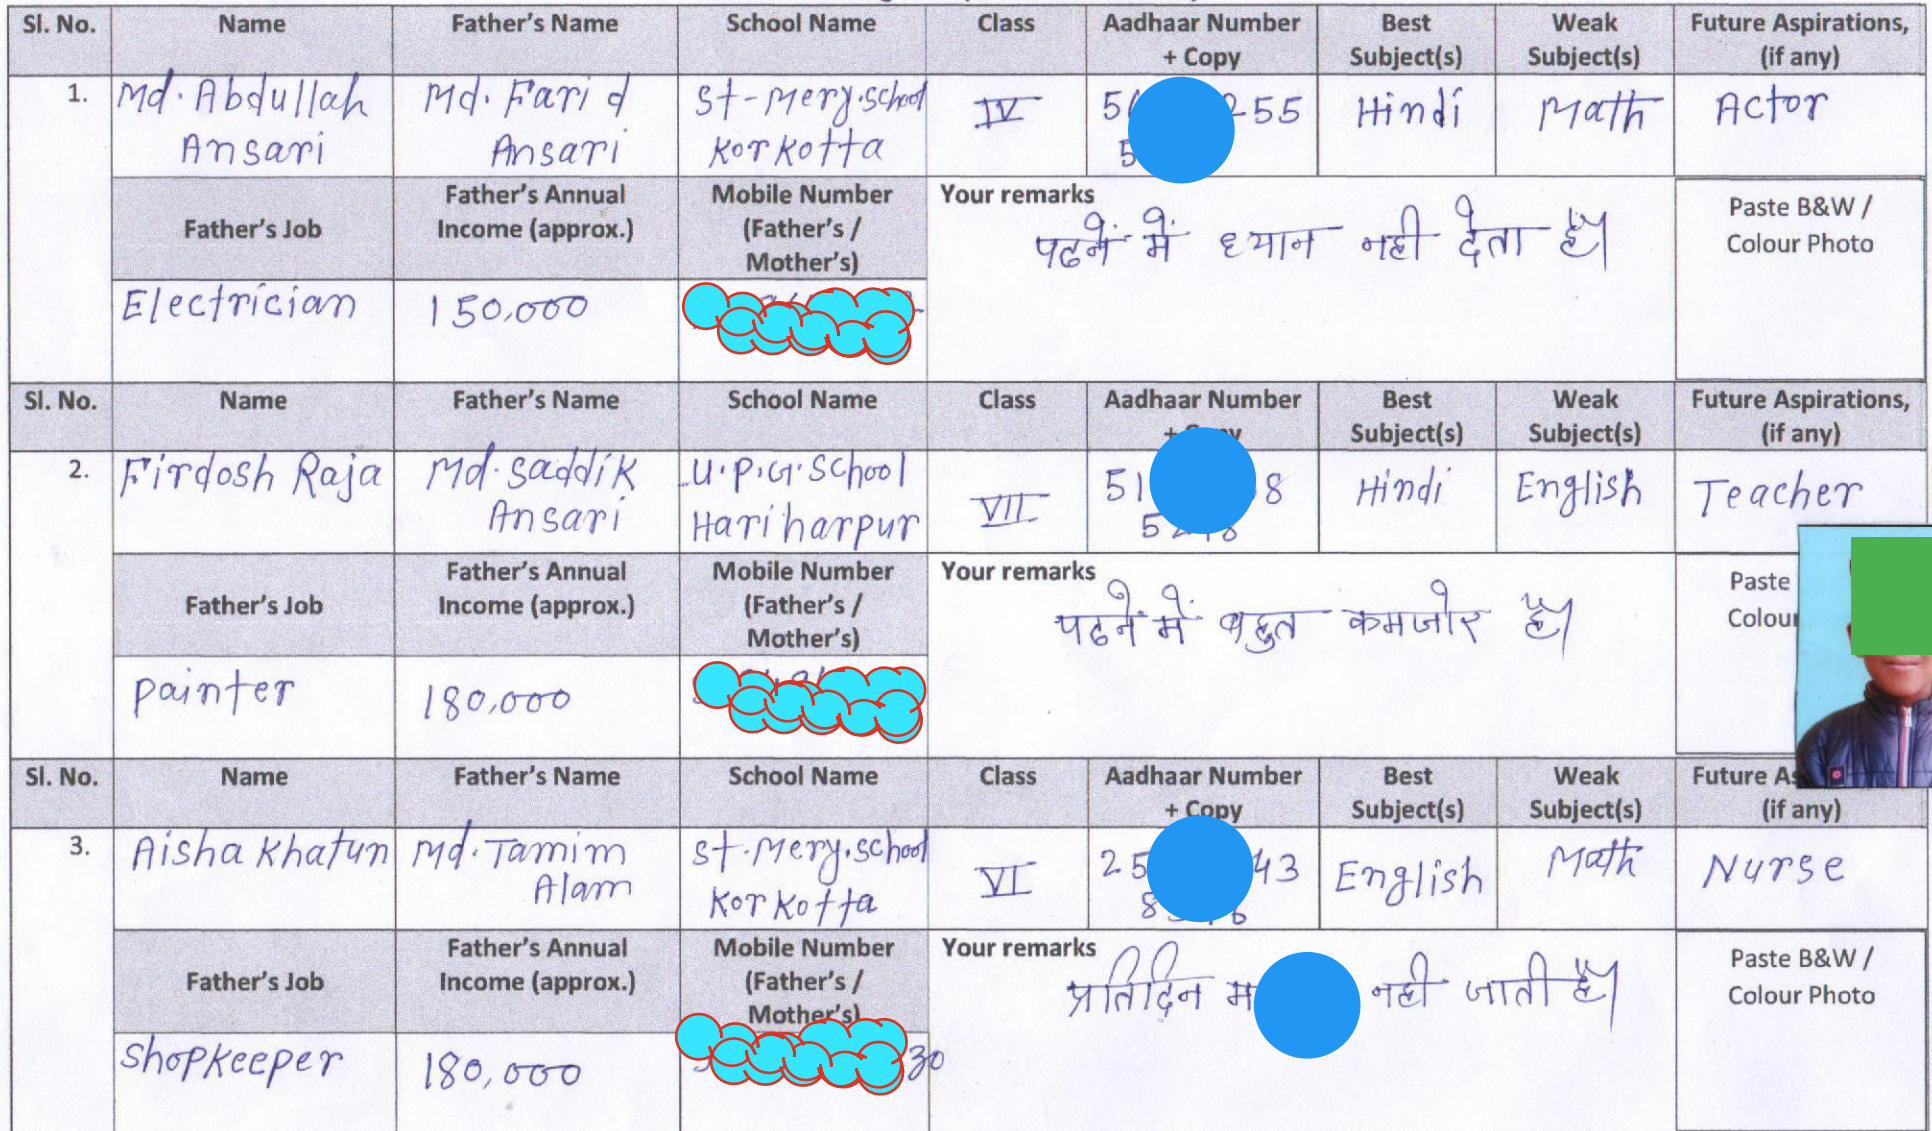 Sl. No. Name Father's Name School Name Class Aadhaar Number + Copy Best Subject(s) Weak Subject(s) Future Aspirations, (if any)
1. Md. Abdullah Ansari Md. Farid Ansari St-Mery.school Korkotta IV Hindi Math Actor
Father's Job Father's Annual Income (approx.) Mobile Number (Father's / Mother's) Your remarks Paste B&W / Colour Photo
पढने में ध्यान नही देता है।
Electrician 150,000
Sl. No. Name Father's Name School Name Class Aadhaar Number Best Subject(s) Weak Subject(s) Future Aspirations, (if any)
2. Firdosh Raja Md. Saddik Ansari U.P.G. School Hariharpur VII Hindi English Teacher
Father's Job Father's Annual Income (approx.) Mobile Number (Father's / Mother's) Your remarks Paste
पढने में बहुत कमजोर है।
painter 180,000
Sl. No. Name Father's Name School Name Class Aadhaar Number + Copy Best Subject(s) Weak Subject(s) Future (if any)
3. Aisha Khatun Md. Tamim Alam St. Mery. School Korkotta VI English Math Nurse
Father's Job Father's Annual Income (approx.) Mobile Number (Father's / Mother's) Your remarks Paste B&W / Colour Photo
प्रतिदिन नही जाती है।
Shopkeeper 180,000